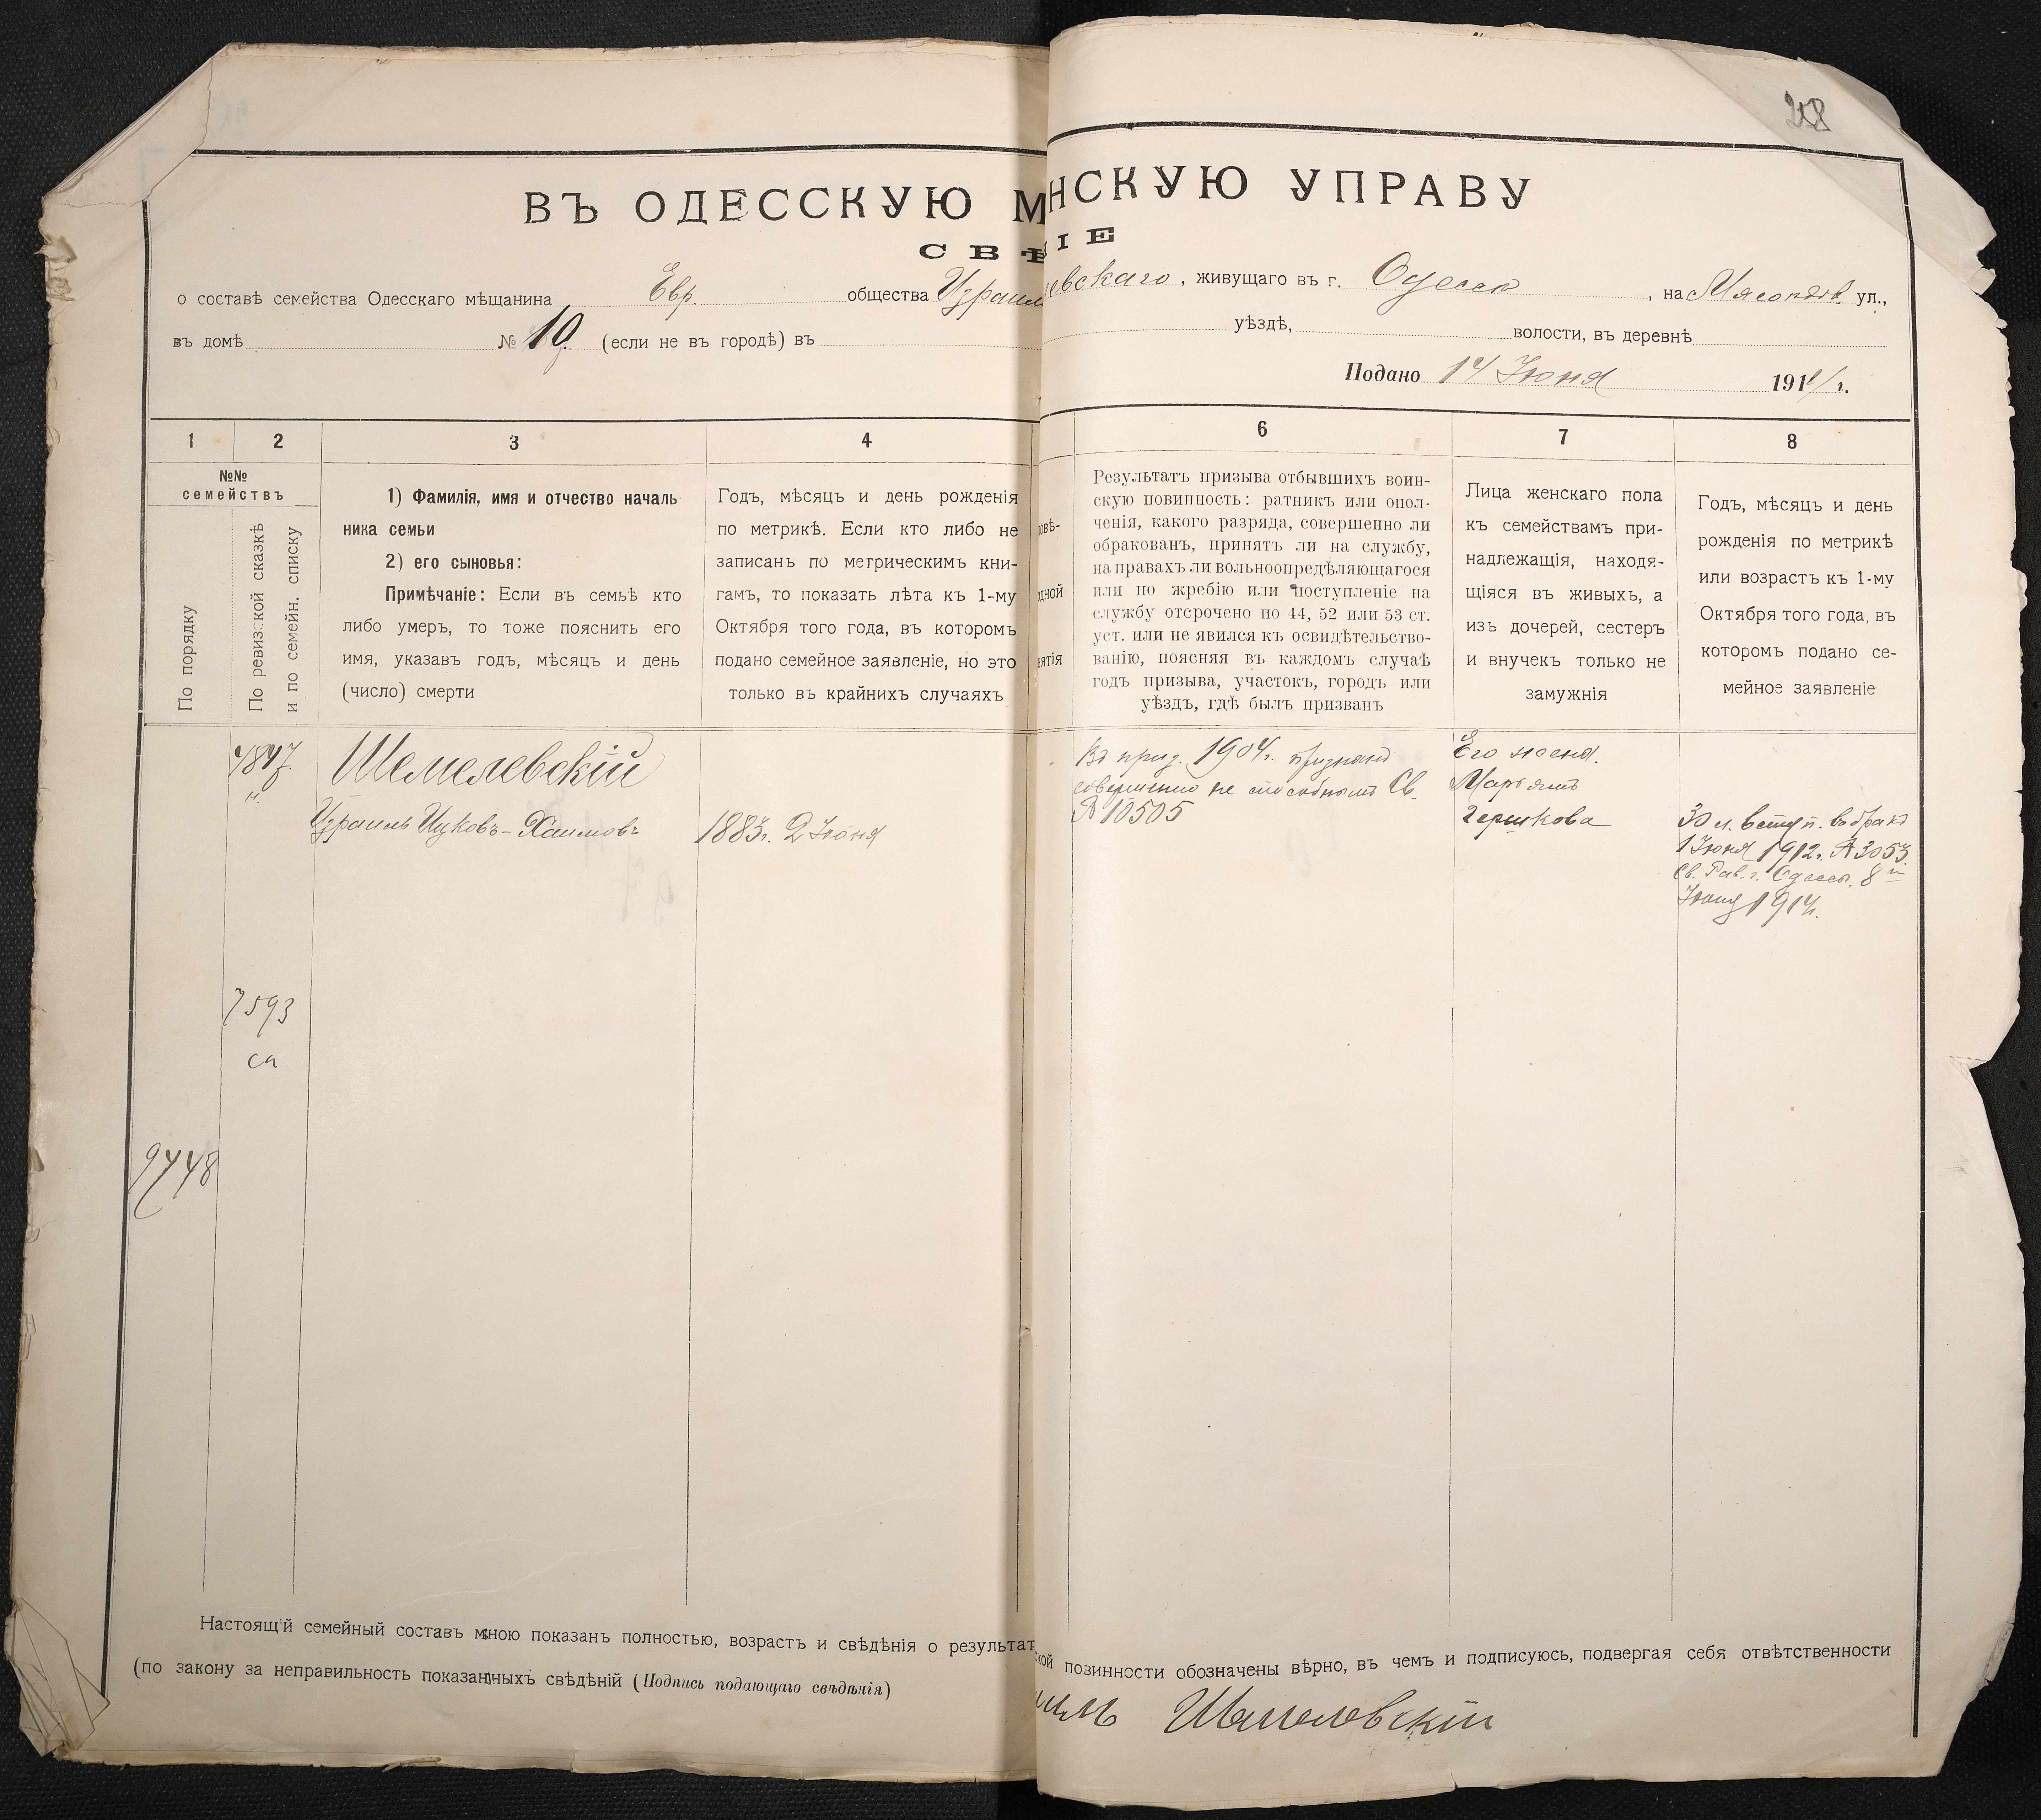 28
ВЪ ОДЕССКУЮ М НСКУЮ УПРАВУ
СВѢ ІЕ
о составѣ семейства Одесскаго мѣщанина Евр. общества Израил евскаго, живущаго въ г. Одессѣ, на Мясоѣдов. ул.,
въ домѣ № 19 (если не въ городѣ) въ уѣздѣ, волости, въ деревнѣ
Подано 14 Іюня 1914 г.
1 2 3 4 6 7 8
№№
семействъ
По порядку
По ревизской сказкѣ
и по семейн. списку
1) Фамилія, имя и отчество началь
ника семьи
2) его сыновья:
Примѣчаніе: Если въ семьѣ кто
либо умеръ, то тоже пояснить его
имя, указавъ годъ, мѣсяцъ и день
(число) смерти
Годъ, мѣсяцъ и день рожденія
по метрикѣ. Если кто либо не
записанъ по метрическимъ кни-
гамъ, то показать лѣта къ 1-му
Октября того года, въ которомъ
подано семейное заявленіе, но это
только въ крайнихъ случаяхъ
овѣ-
дной
нятія
Результатъ призыва отбывшихъ воин-
скую повинность: ратникъ или опол-
ченія, какого разряда, совершенно ли
обракованъ, принятъ ли на службу,
на правахъ ли вольноопредѣляющагося
или по жребію или поступленіе на
службу отсрочено по 44, 52 или 53 ст.
уст. или не явился къ освидѣтельство-
ванію, поясняя въ каждомъ случаѣ
годъ призыва, участокъ, городъ или
уѣздъ, гдѣ былъ призванъ
Лица женскаго пола
къ семействамъ при-
надлежащія, находя-
щіяся въ живыхъ, а
изъ дочерей, сестеръ
и внучекъ только не
замужнія
Годъ, мѣсяцъ и день
рожденія по метрикѣ
или возрастъ къ 1-му
Октября того года, въ
которомъ подано се-
мейное заявленіе
4847
Шемелевскій
Израиль Ицковъ-Хаимовъ
1883г. 2 Іюня
Въ приз. 1904г. признанъ
совершенно не способнымъ Св.
№ 10505
Его жена.
Марьямъ
Гершкова
30 л. вступ. въ бракъ
1 Іюня 1912г. № 3053.
Св. Рав. г. Одессы. 8го
Іюня 1914г.
7593
сп
9748
Настоящій семейный составъ мною показанъ полностью, возрастъ и свѣдѣнія о результат ской повинности обозначены вѣрно, въ чемъ и подписуюсь, подвергая себя отвѣтственности
(по закону за неправильность показанныхъ свѣдѣній (Подпись подающаго свѣдѣнія)
иль Шемелевскій